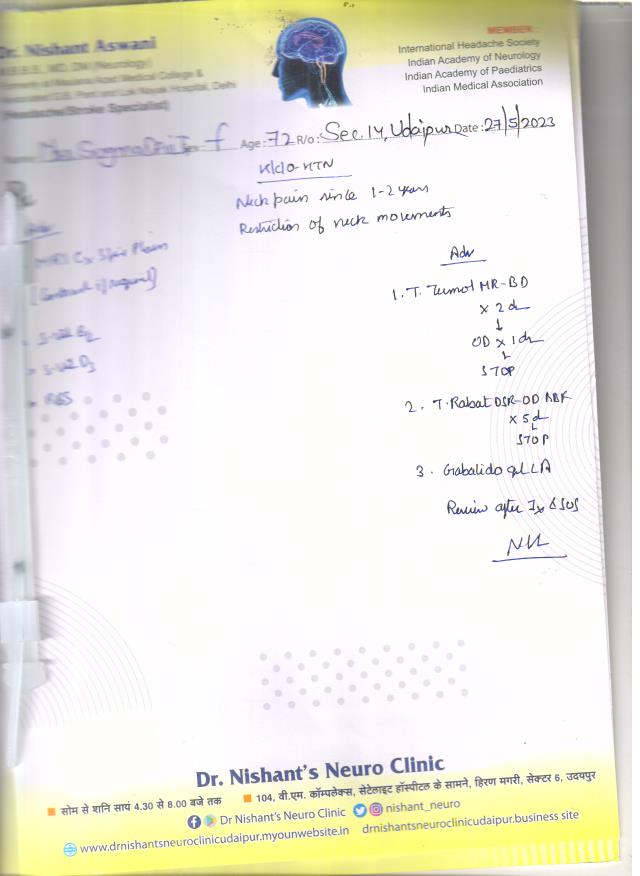 Dr. Nishant Aswani
M.B.B.S., MD, DM (Neurology)
(Headache/Stroke Specialist)
MEMBER :
International Headache Society
Indian Academy of Neurology
Indian Academy of Paediatrics
Indian Medical Association
f Age : 72 R/o : Sec. 14, Udaipur Date : 27/5/2023
K/c/o-HTN
Neck pain since 1-2 years
Restriction of neck movements
Adv
MRI Cx Spine Plain
[Contrast if required]
RBS
Adv
1. T. Zumol MR-BD
x 2 d
↓
OD x 1 d
↓
STOP
2. T. Rabat DSR-OD ABF
x 5 d
↓
STOP
3. Gabalido gel LA
Review after Ix & SOS
Dr. Nishant's Neuro Clinic
सोम से शनि सायं 4.30 से 8.00 बजे तक 104, वी.एम. कॉम्पलेक्स, सेटेलाइट हॉस्पीटल के सामने, हिरण मगरी, सेक्टर 6, उदयपुर
Dr Nishant's Neuro Clinic nishant_neuro
www.drnishantsneuroclinicudaipur.myounwebsite.in drnishantsneuroclinicudaipur.business site